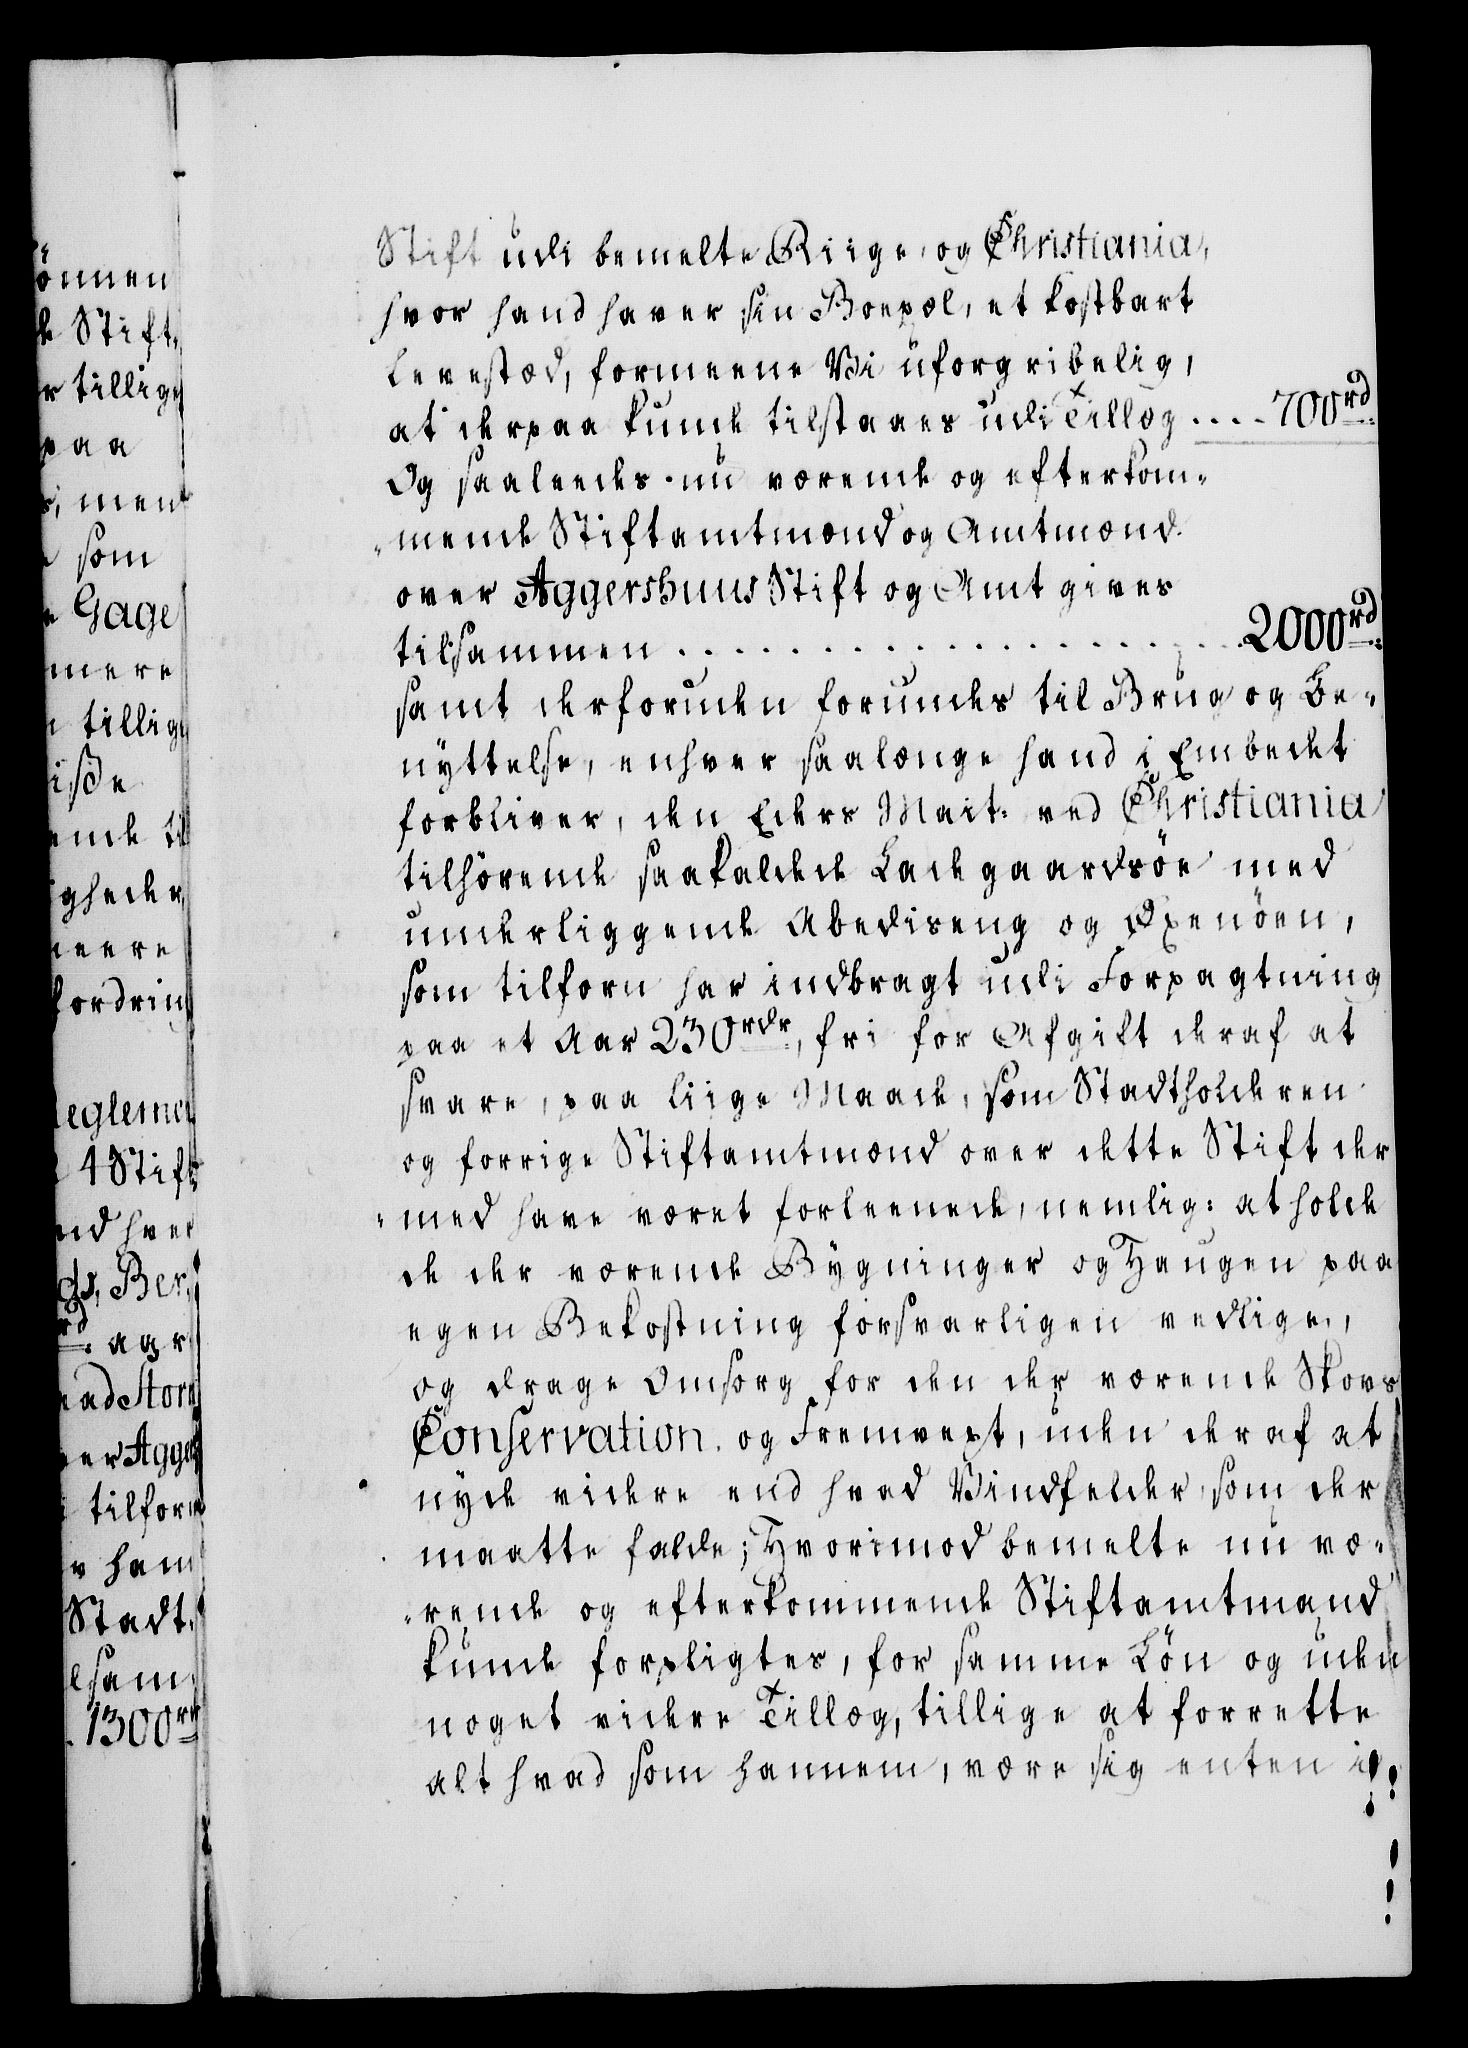 Stift udi bemelte Riige og Christiania,
hvor hand haver sin Boepæl, et kostbart
Levestæd, formeene Vi uforgribelig,
at derpaa kunde tilstaaes udi Tillæg .... 700rd
Og saaleedes nu værende og efterkom-
mende Stiftamtmænd og Amtmænd
over Aggershuus Stift og Amt gives
tilsammen . . . . . . . . . . . . . . . . . . 2000rd
samt derforuden forundes til Brug og Be-
nyttelse, enhver saalænge hand i Embedet
forbliver, den Eders Mait: ved Christiania
tilhörende saakaldede Ladegaardsöe med
underliggende Abediseng og Oxenöen,
som tilforn har indbragt udi Forpagtning
paa et Aar 230rdr, fri for Afgift deraf at
svare, paa liige Maade, som Stadtholderen
og forrige Stiftamtmænd over dette Stift der
med have været forleenede, nemlig: at holde
de der værende Bygninger og Haugen paa
egen Bekostning forsvarligen vedlige,
og drage Omsorg for den der værende Skovs
Conservation og Fremvext, uden deraf at
nyde videre end hvad Vindfelder, som der
maatte falde; Hvorimod bemelte nu væ-
rende og efterkommende Stiftamtmand
kunde forpligtes, for samme Lön og uden
noget videre Tillæg, tillige at forrette
alt hvad som hannem, være sig enten i
önnen
Stift
tillige
paa
men
som
Gage
mere
tillig
gheder,
meere
fordring
Reglement
4 Stift
hver
Ber.
aar
tilforn
ham
Stadt
lsam
1300rd